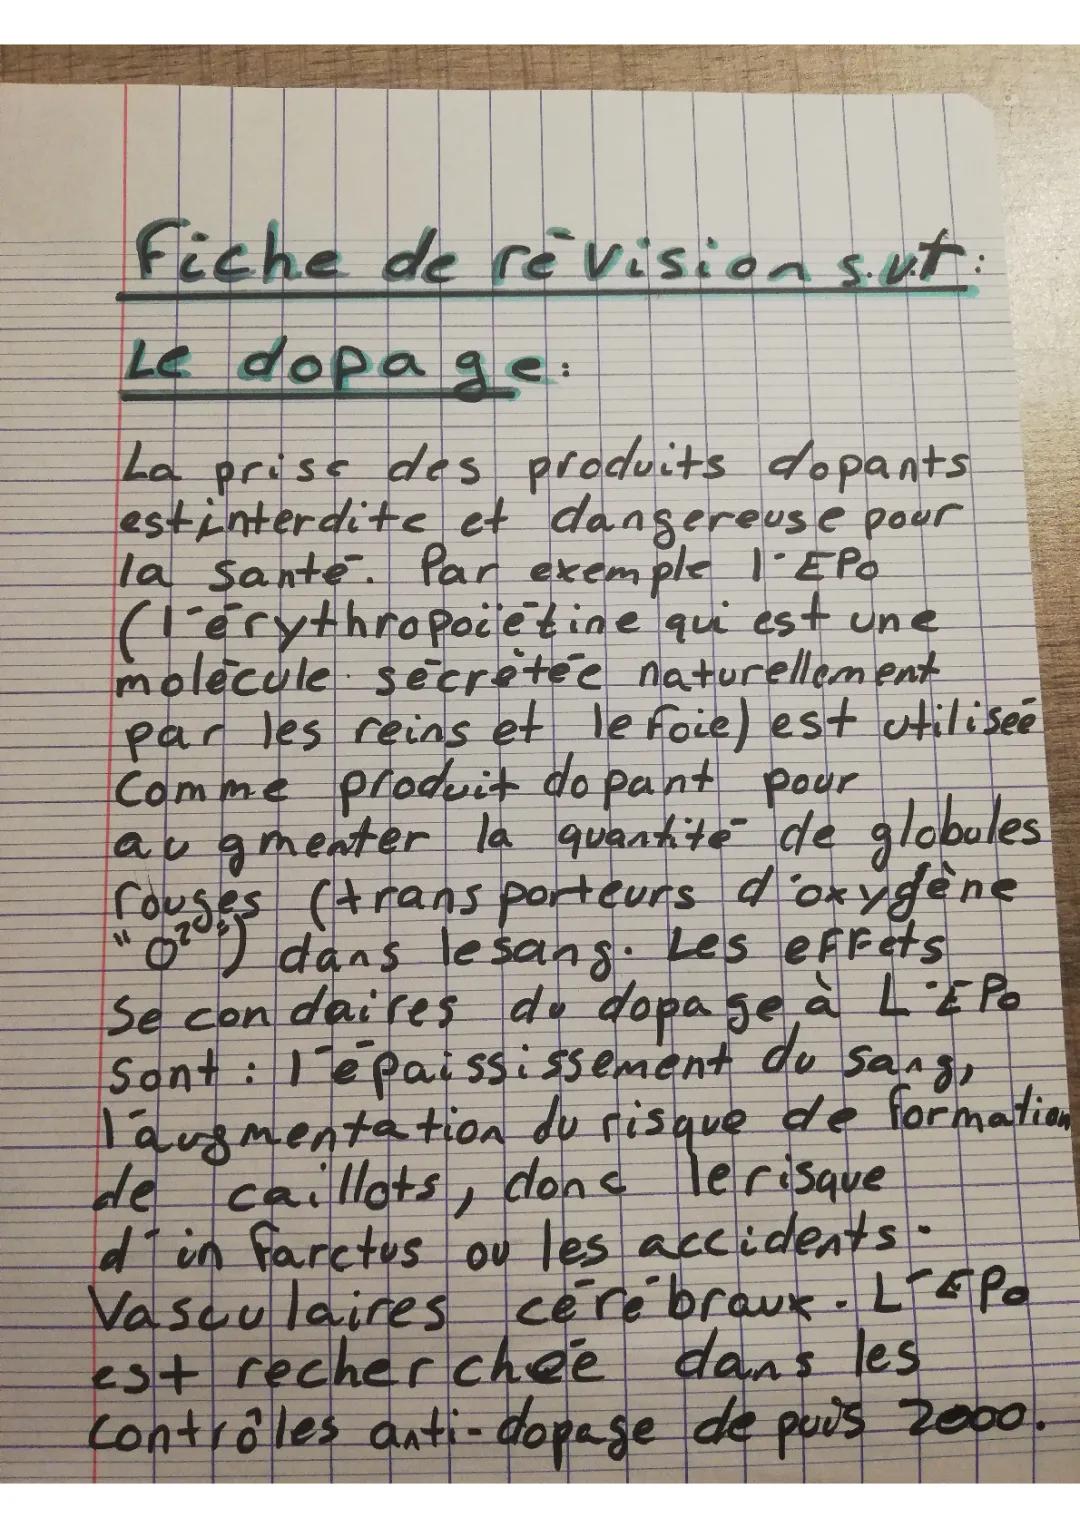 Fiche de révision s.v.t :
Le dopage :
La prise des produits dopants
est interdite et dangereuse pour
la santé. Par exemple l'EPO
(l'érythropoïétine qui est une
molécule sécrétée naturellement
par les reins et le foie) est utilisée
Comme produit dopant pour
augmenter la quantité de globules
rouges (transporteurs d'oxygène
"O²") dans le sang. Les effets
secondaires du dopage à L'EPO
sont : l'épaississement du sang,
l'augmentation du risque de formation
de caillots, donc le risque
d'infarctus ou les accidents.
Vasculaires cérébraux. L'EPO
est recherchée dans les
contrôles anti-dopage depuis 2000.